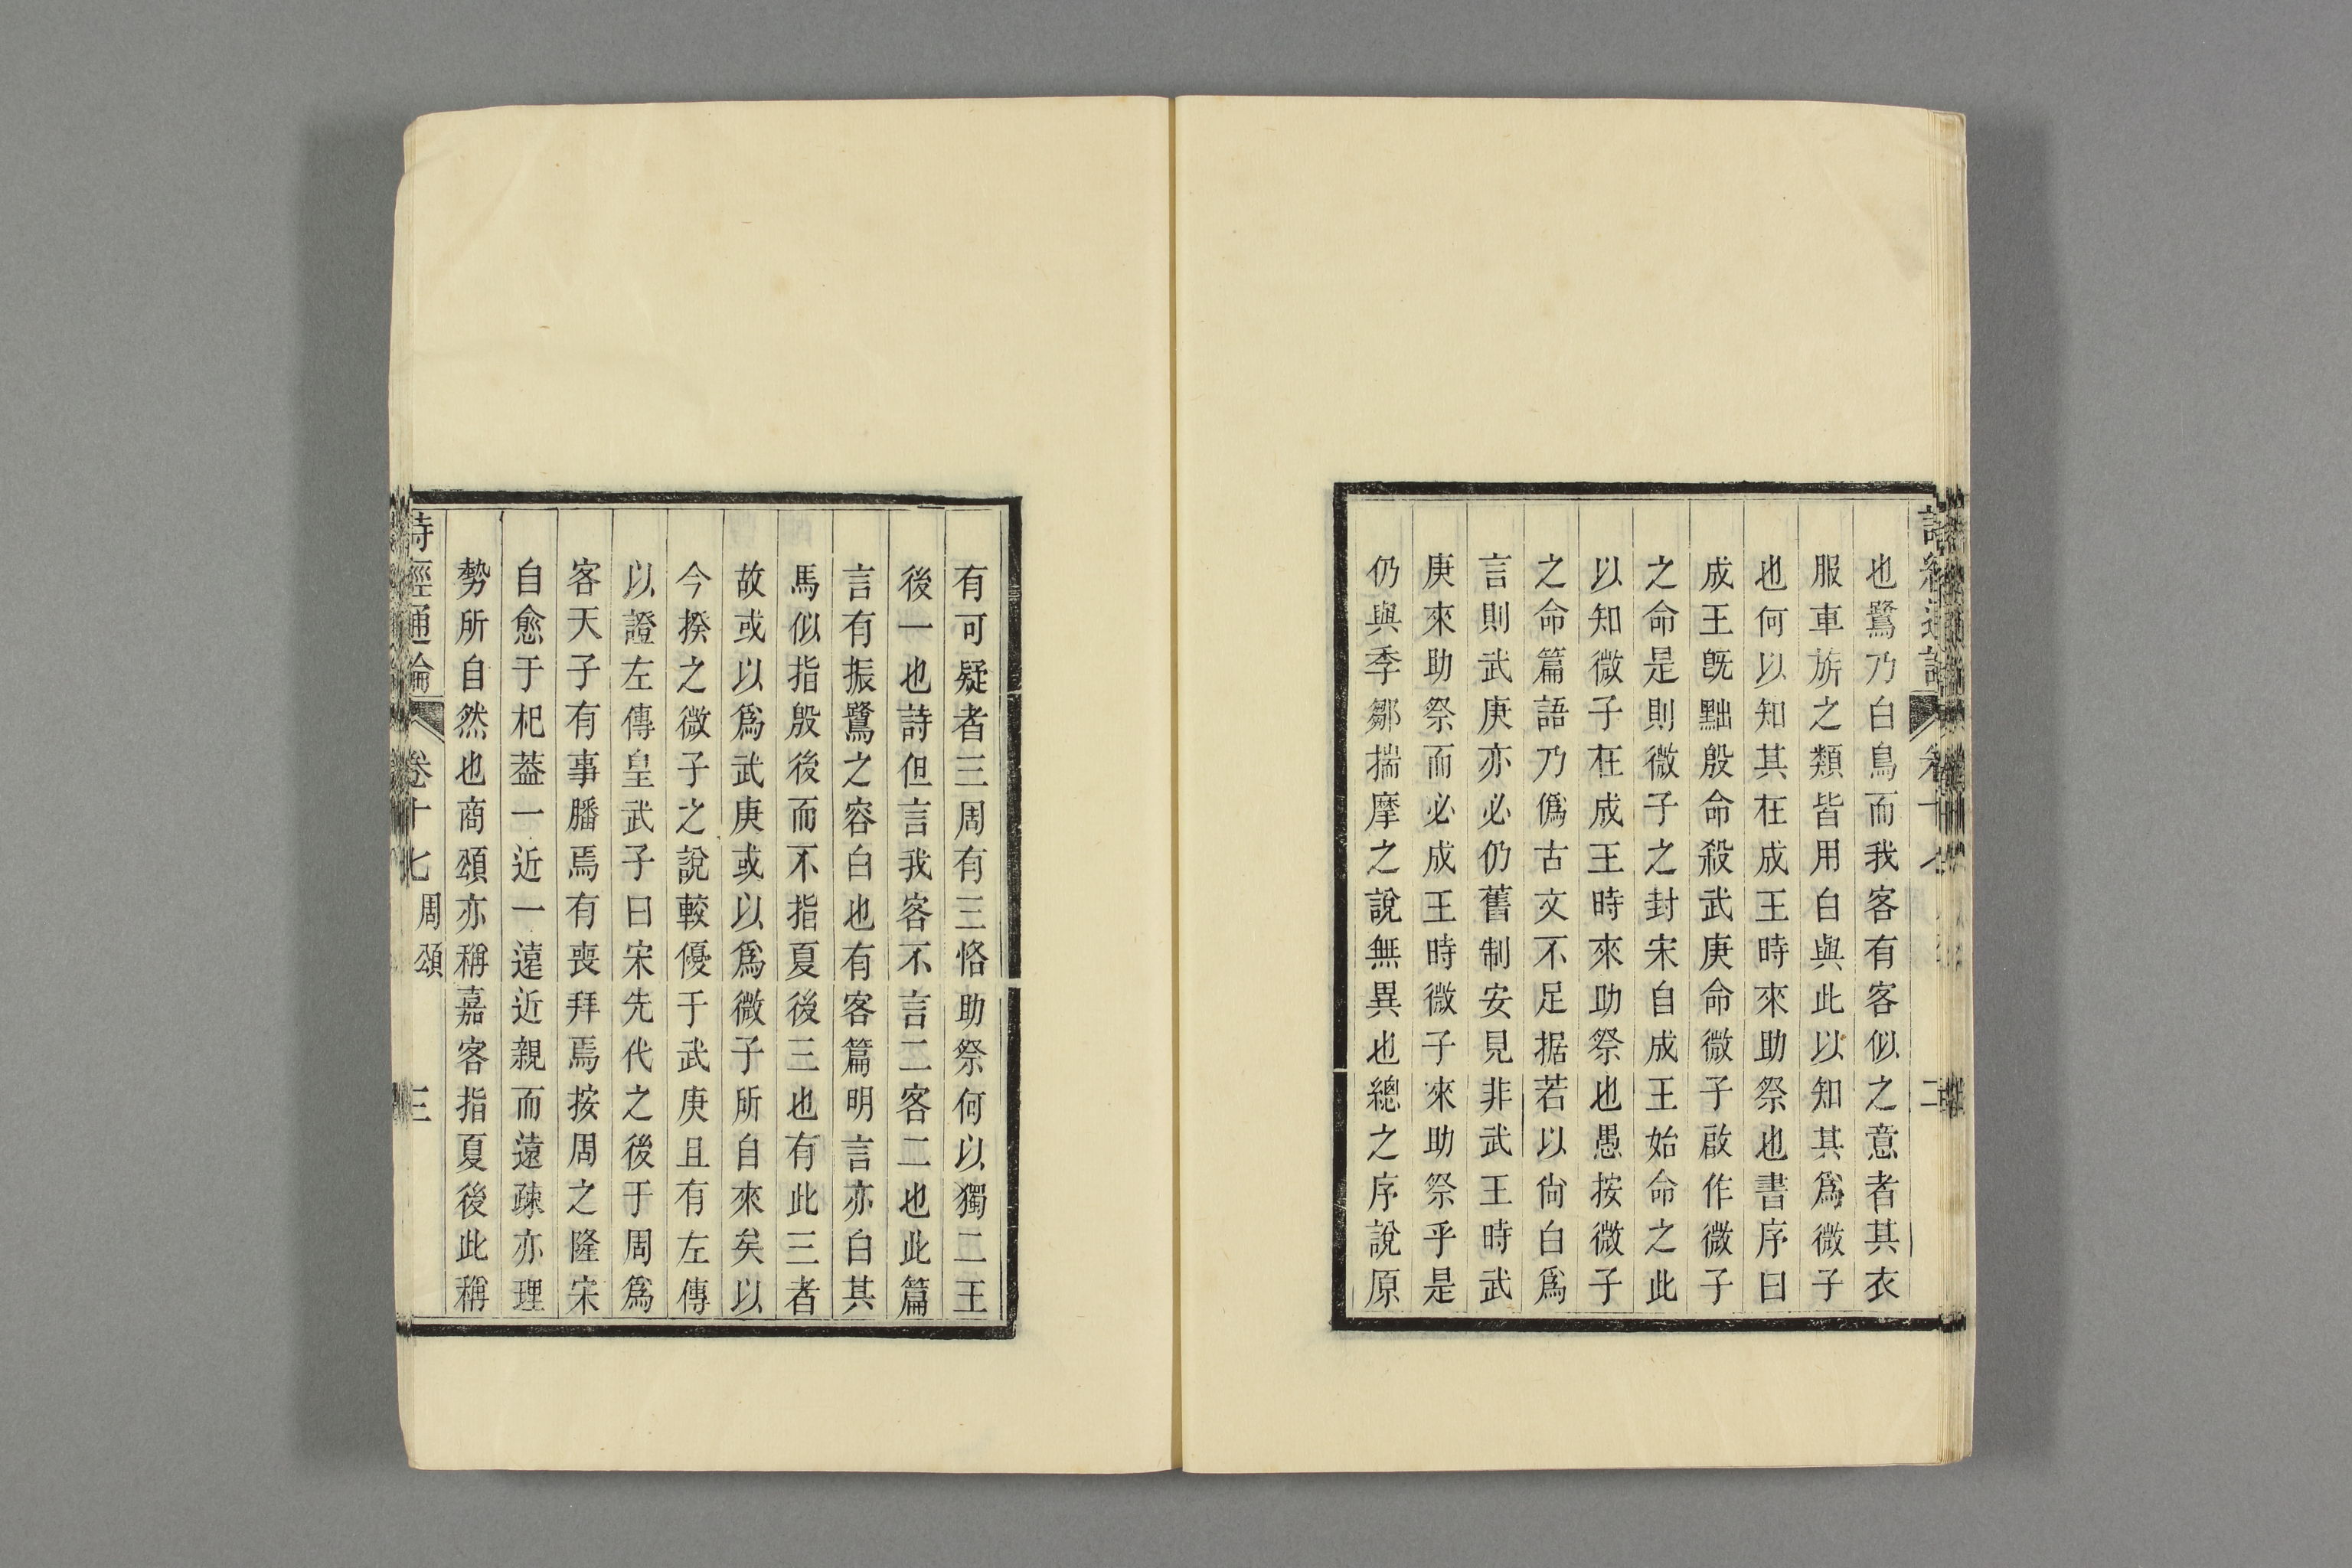 也鷺乃白鳥而我客有客似之意者其衣
服車旂之類皆用白與此以知其爲微子
也何以知其在成王時來助祭也書序曰
成王旣黜殷命殺武庚命微子啟作微子
之命是則微子之封宋自成王始命之此
以知微子在成王時來助祭也愚按微子
之命篇語乃僞古文不足据若以尙白爲
言則武庚亦必仍舊制安見非武王時武
庚來助祭而必成王時微子來助祭乎是
仍與季鄒揣摩之說無異也總之序說原
有可疑者三周有三恪助祭何以獨二王
後一也詩但言我客不言二客二也此篇
言有振鷺之容白也有客篇明言亦白其
馬似指殷後而不指夏後三也有此三者
故或以爲武庚或以爲微子所自來矣以
今揆之微子之說較優于武庚且有左傳
以證左傳皇武子曰宋先代之後于周爲
客天子有事膰焉有喪拜焉按周之隆宋
自愈于杞葢一近一遠近親而遠疎亦理
勢所自然也商頌亦稱嘉客指夏後此稱
詩經通論 卷十七 周頌 三